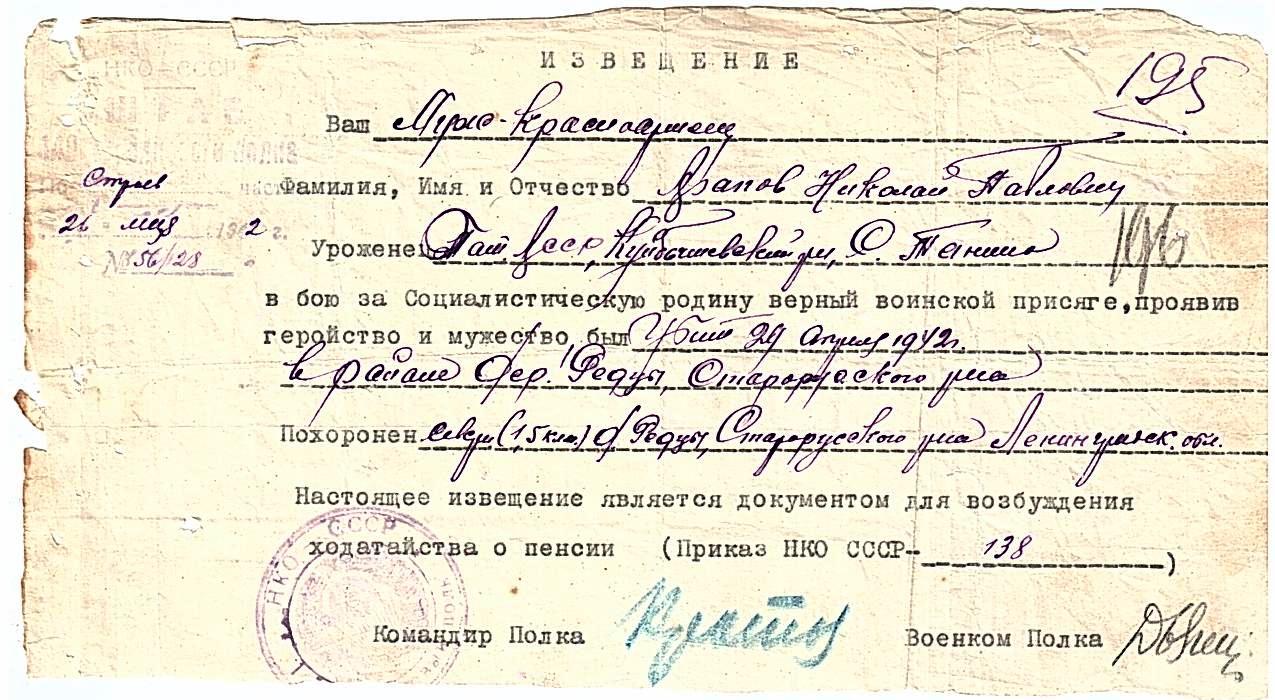 ИЗВЕЩЕНИЕ
195
Ваш Муж-красноармеец
НКО-СССР
Строев част
26 мая 1942 г.
№ 56/28
Фамилия, Имя и Отчество Арапов Николай Павлович
Уроженец Тат. АССР, Куйбышевский р-н, С.
в бою за Социалистическую родину верный воинской присяге, проявив
геройство и мужество был Убит 29 апреля 1942 г.
в районе дер. Редцы, Старорусского р-на
Похоронен (1,5 клм.) д. Редцы, Старорусского р-на Ленинградск. обл.
Настоящее извещение является документом для возбуждения
ходатайства о пенсии (Приказ НКО СССР- 138 )
НКО СССР
Командир Полка Военком Полка